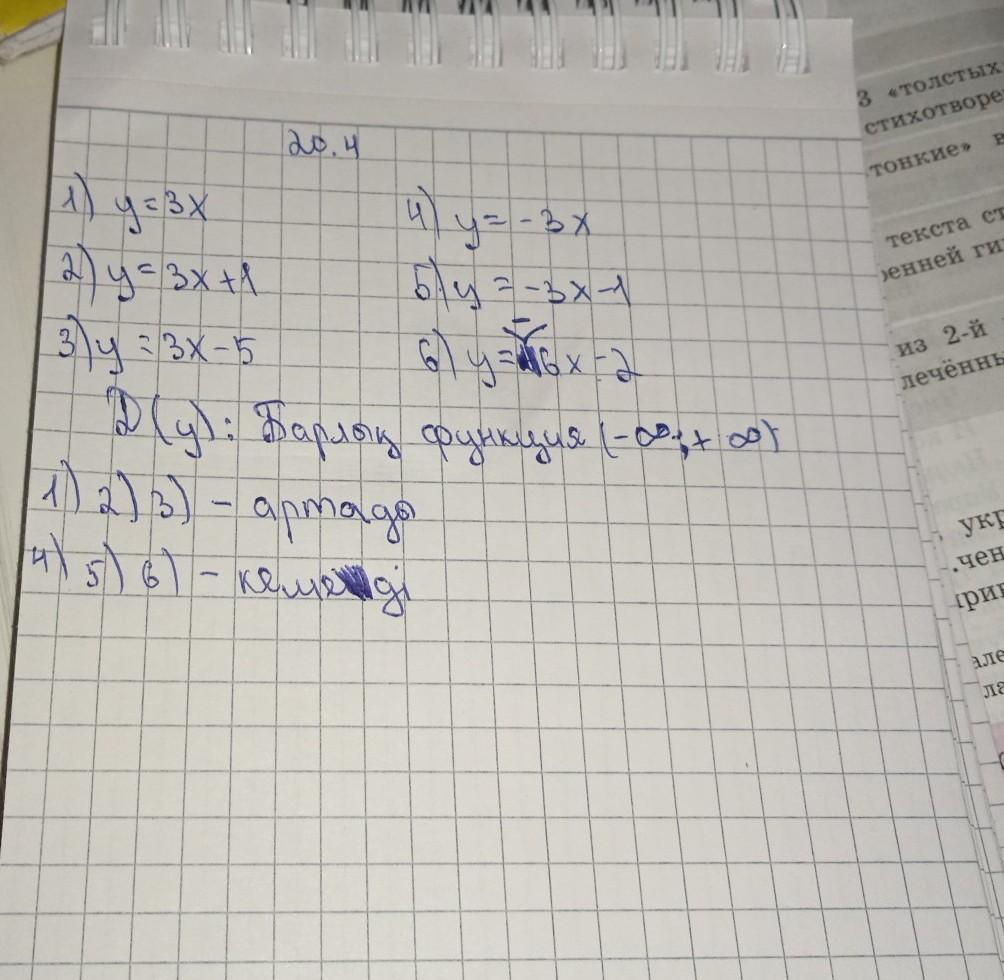 20.4
1) y = 3x
2) y = 3x+1
3) y = 3x-5
4) y = -3x
5) y = -3x-1
6) y = -6x-2
D(y): Барлық функция (-∞;+∞)
1) 2) 3) - артады
4) 5) 6) - кемиді
3 «толстых
стихотворе
тонкие» в
текста ст
ренней ги
из 2-й
лечённы
укр
чен
але
ла